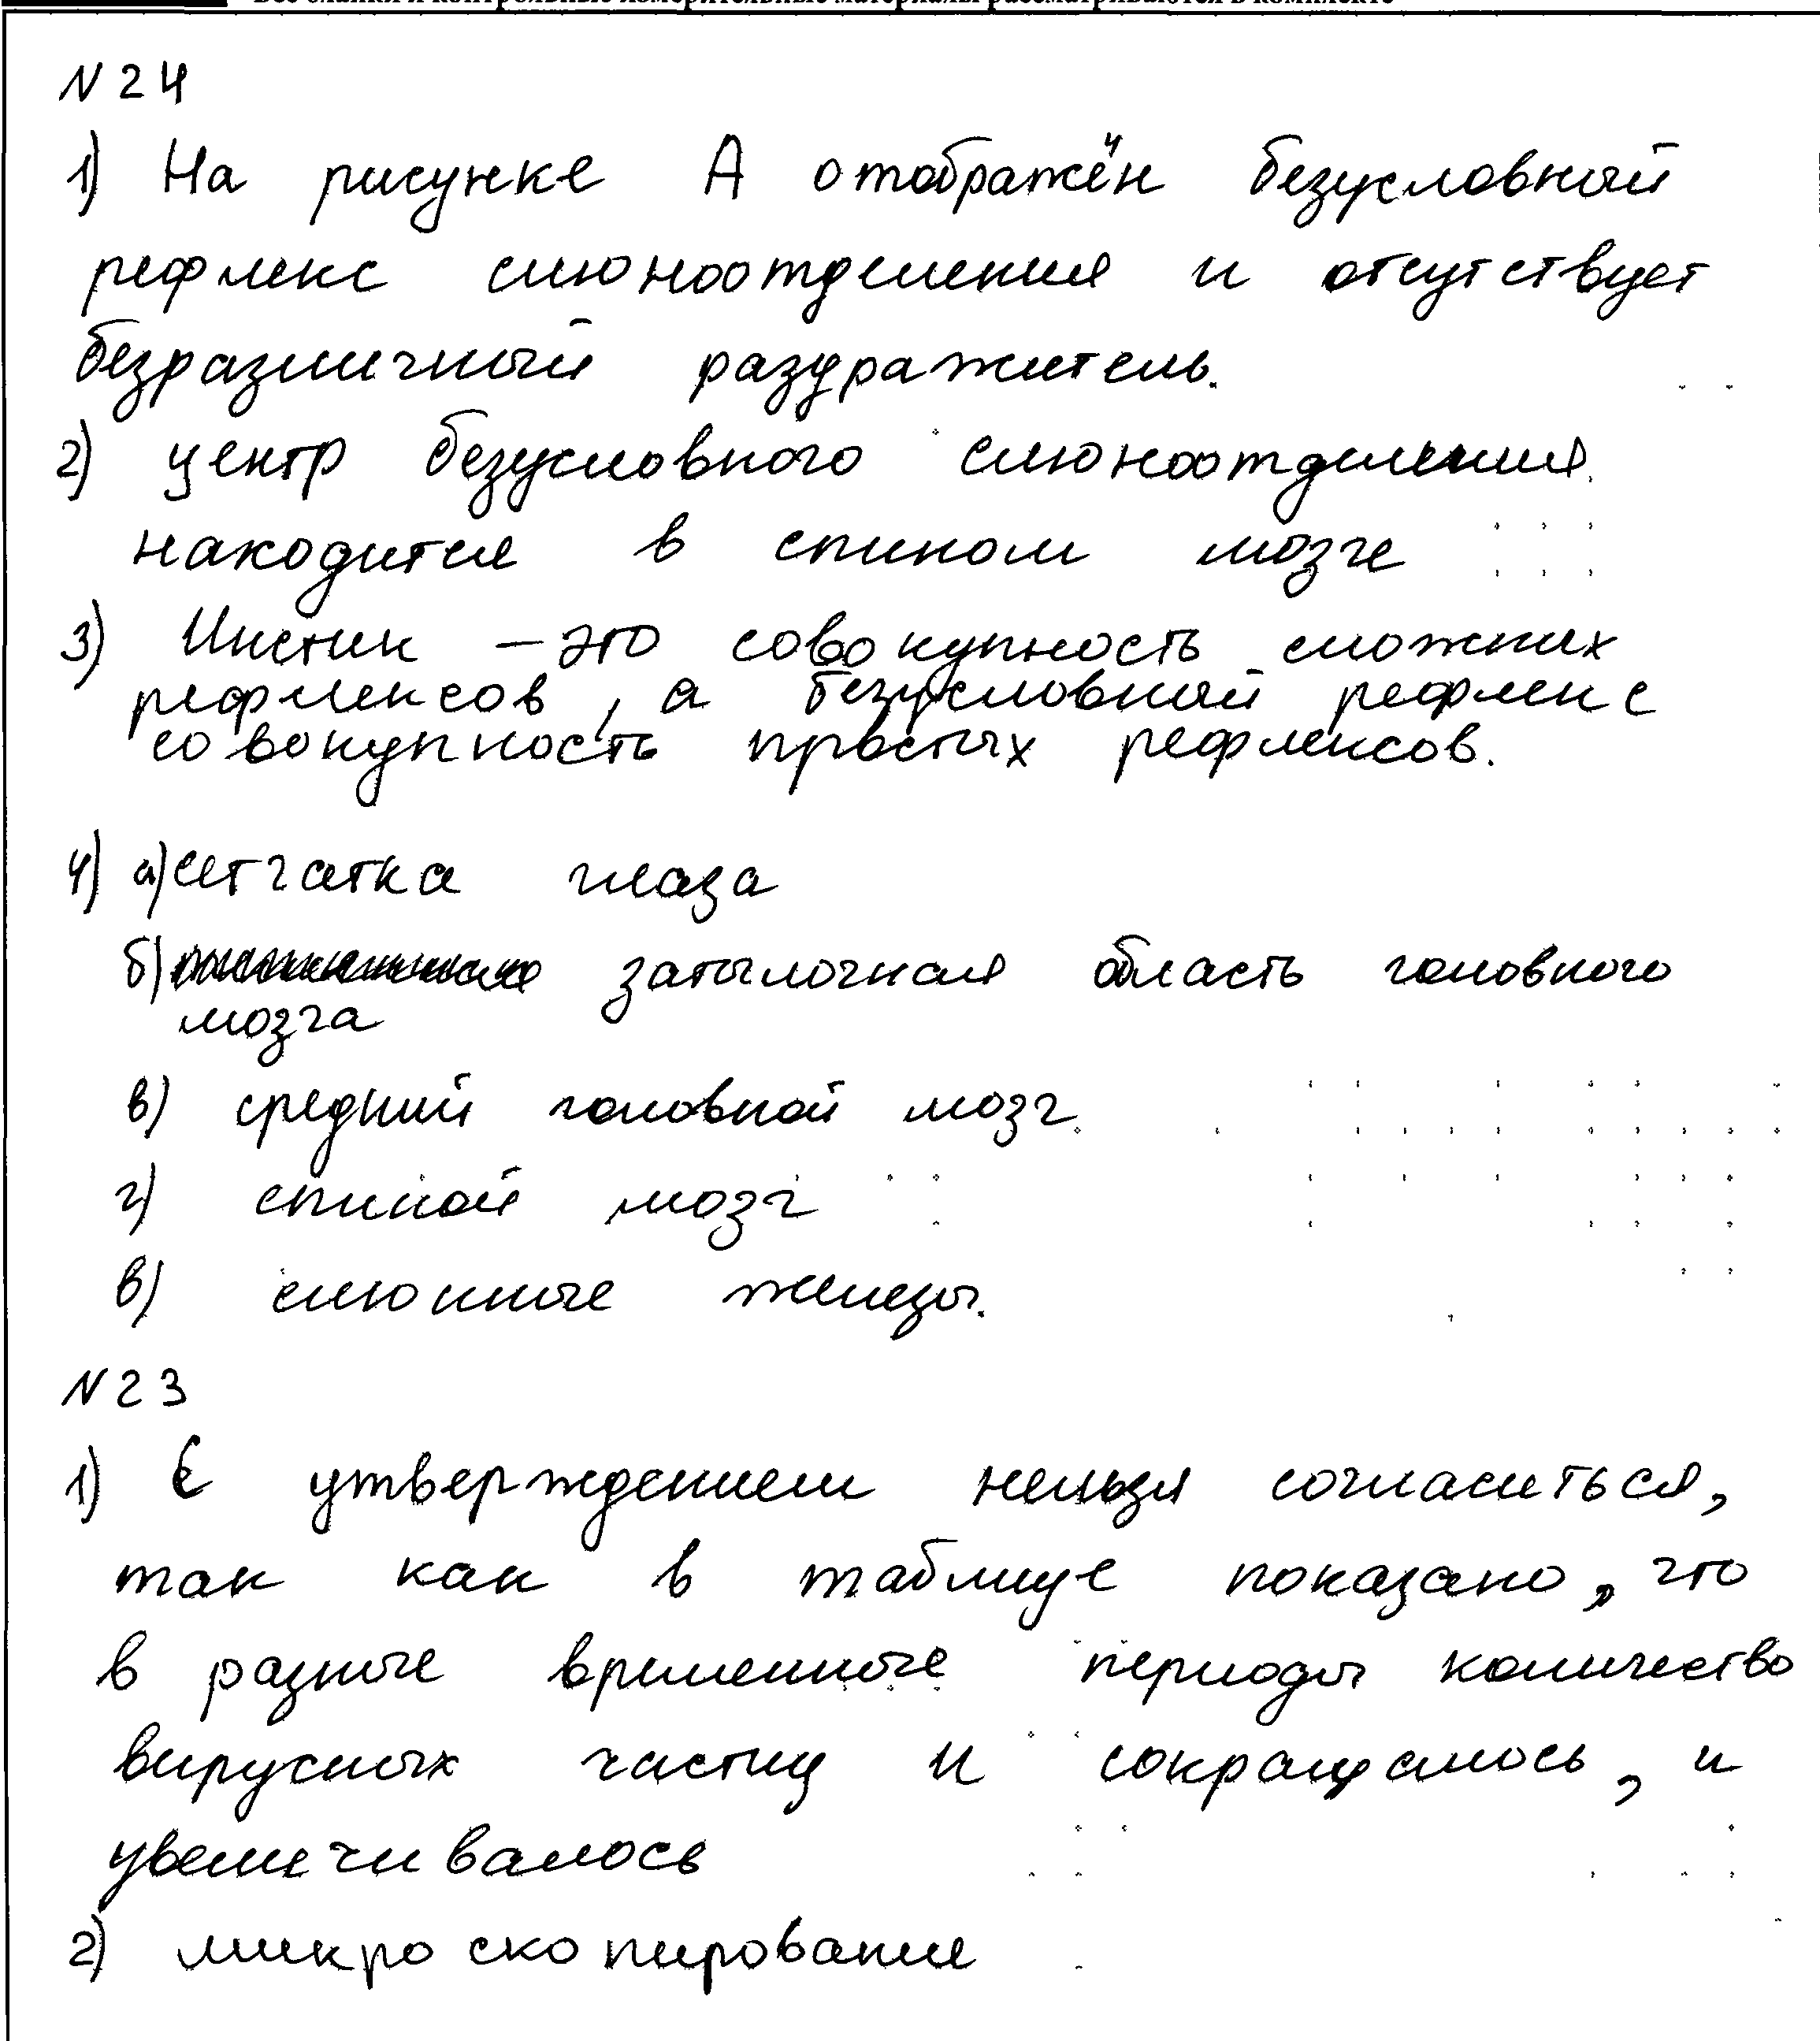 Все бланки и контрольные измерительные материалы рассматриваются в комплекте
N 24
1) На рисунке А отображён безусловный
рефлекс слюноотделения и отсутствует
безразличный раздражитель.
2) центр безусловного слюноотделения
находится в спином мозге
3) Инстик – это совокупность сложных
рефлексов, а безусловный рефлекс
совокупность простых рефлексов.
4) а) сетчатка глаза
б) затылочная область головного
мозга
в) средний головной мозг
г) спиной мозг
в) слюнные железы.
N 23
1) С утверждением нельзя согласиться,
так как в таблице показано, что
в разные временные периоды количество
вирусных частиц и сокращалось, и
увеличивалось
2) микроскопирование